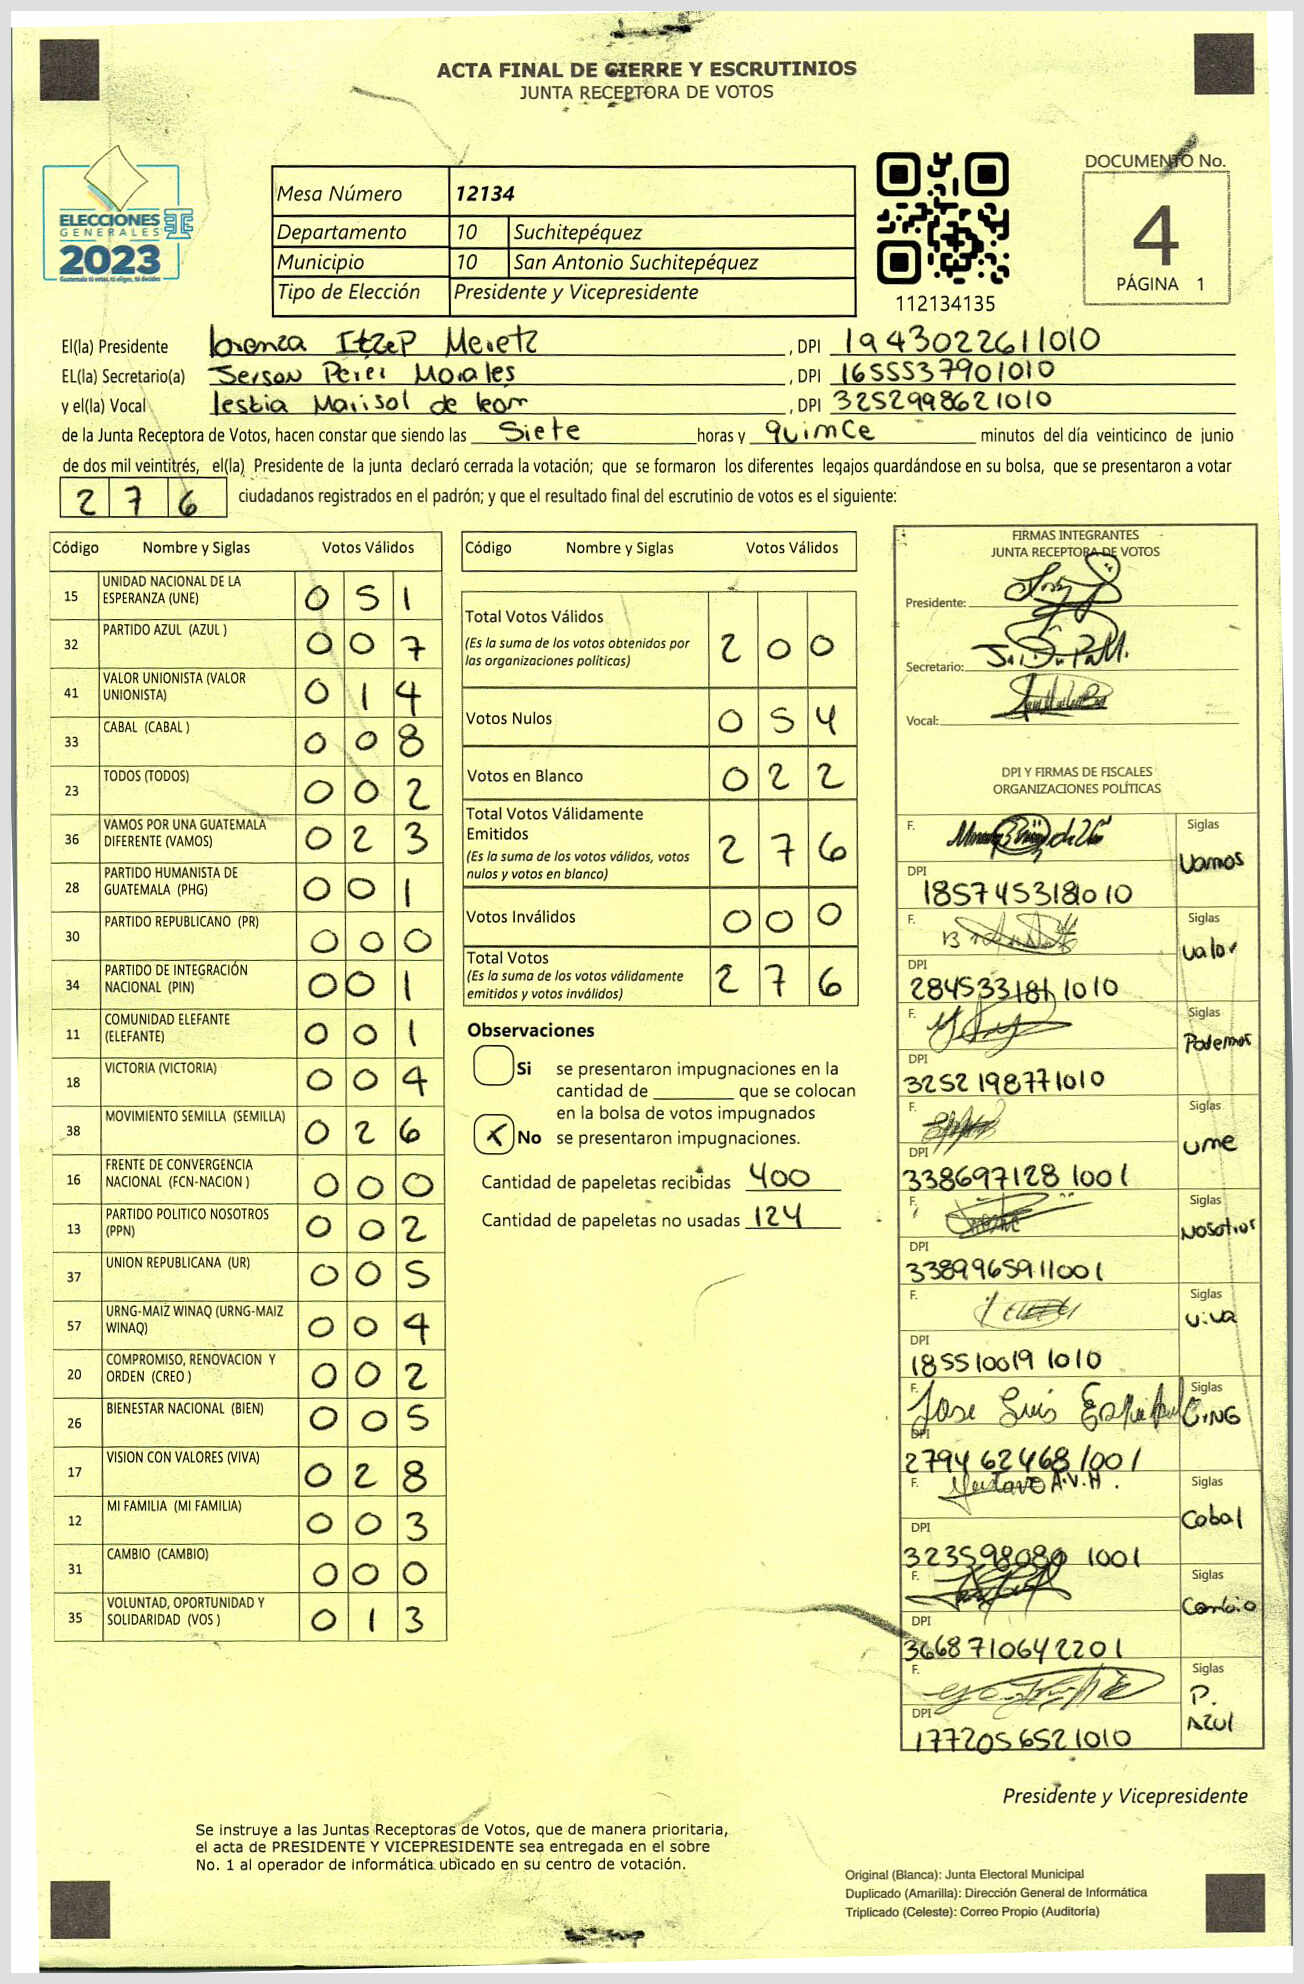 ACTA FINAL DE CIERRE Y ESCRUTINIOS
JUNTA RECEPTORA DE VOTOS
ELECCIONES
GENERALES
2023
Mesa Número 12134
Departamento 10 Suchitepéquez
Municipio 10 San Antonio Suchitepéquez
Tipo de Elección Presidente y Vicepresidente
112134135
DOCUMENTO No.
4
PÁGINA 1
El(la) Presidente Lorenza Itzep Meretz , DPI 1943022611010
EL(la) Secretario(a) Jerson Perez Morales , DPI 1655537901010
y el(la) Vocal lesbia Marisol de leon , DPI 3252998621010
de la Junta Receptora de Votos, hacen constar que siendo las Siete horas y quimce minutos del día veinticinco de junio
de dos mil veintitrés, el(la) Presidente de la junta declaró cerrada la votación; que se formaron los diferentes legajos guardándose en su bolsa, que se presentaron a votar
276 ciudadanos registrados en el padrón; y que el resultado final del escrutinio de votos es el siguiente:
Código Nombre y Siglas Votos Válidos
15 UNIDAD NACIONAL DE LA ESPERANZA (UNE) 0 5 1
32 PARTIDO AZUL (AZUL ) 0 0 7
41 VALOR UNIONISTA (VALOR UNIONISTA) 0 1 4
33 CABAL (CABAL ) 0 0 8
23 TODOS (TODOS) 0 0 2
36 VAMOS POR UNA GUATEMALA DIFERENTE (VAMOS) 0 2 3
28 PARTIDO HUMANISTA DE GUATEMALA (PHG) 0 0 1
30 PARTIDO REPUBLICANO (PR) 0 0 0
34 PARTIDO DE INTEGRACIÓN NACIONAL (PIN) 0 0 1
11 COMUNIDAD ELEFANTE (ELEFANTE) 0 0 1
18 VICTORIA (VICTORIA) 0 0 4
38 MOVIMIENTO SEMILLA (SEMILLA) 0 2 6
16 FRENTE DE CONVERGENCIA NACIONAL (FCN-NACION ) 0 0 0
13 PARTIDO POLITICO NOSOTROS (PPN) 0 0 2
37 UNION REPUBLICANA (UR) 0 0 5
57 URNG-MAIZ WINAQ (URNG-MAIZ WINAQ) 0 0 4
20 COMPROMISO, RENOVACION Y ORDEN (CREO ) 0 0 2
26 BIENESTAR NACIONAL (BIEN) 0 0 5
17 VISION CON VALORES (VIVA) 0 2 8
12 MI FAMILIA (MI FAMILIA) 0 0 3
31 CAMBIO (CAMBIO) 0 0 0
35 VOLUNTAD, OPORTUNIDAD Y SOLIDARIDAD (VOS ) 0 1 3
Código Nombre y Siglas Votos Válidos
Total Votos Válidos 2 0 0
(Es la suma de los votos obtenidos por
las organizaciones políticas)
Votos Nulos 0 5 4
Votos en Blanco 0 2 2
Total Votos Válidamente
Emitidos 2 7 6
(Es la suma de los votos válidos, votos
nulos y votos en blanco)
Votos Inválidos 0 0 0
Total Votos 2 7 6
(Es la suma de los votos válidamente
emitidos y votos inválidos)
Observaciones
Si se presentaron impugnaciones en la
cantidad de ________ que se colocan
en la bolsa de votos impugnados
X No se presentaron impugnaciones.
Cantidad de papeletas recibidas 400
Cantidad de papeletas no usadas 124
FIRMAS INTEGRANTES
JUNTA RECEPTORA DE VOTOS
Presidente:
Secretario:
Vocal:
DPI Y FIRMAS DE FISCALES
ORGANIZACIONES POLÍTICAS
F. Siglas Vamos
DPI
F. Siglas Valor
DPI
F. Siglas Podemos
DPI 3252198771010
F. Siglas Ume
DPI 3386971281001
F. Siglas Nosotros
DPI 3389965911001
F. Siglas Viva
DPI 1855100191010
F. Jose Luis Siglas
DPI 2794624681001
F. Gustavo A.V.H. Siglas Cabal
DPI 3235980801001
F. Siglas Cambio
DPI 3668710642201
F. Siglas P. Azul
DPI 1772056521010
Presidente y Vicepresidente
Se instruye a las Juntas Receptoras de Votos, que de manera prioritaria,
el acta de PRESIDENTE Y VICEPRESIDENTE sea entregada en el sobre
No. 1 al operador de informática ubicado en su centro de votación.
Original (Blanca): Junta Electoral Municipal
Duplicado (Amarilla): Dirección General de Informática
Triplicado (Celeste): Correo Propio (Auditoría)